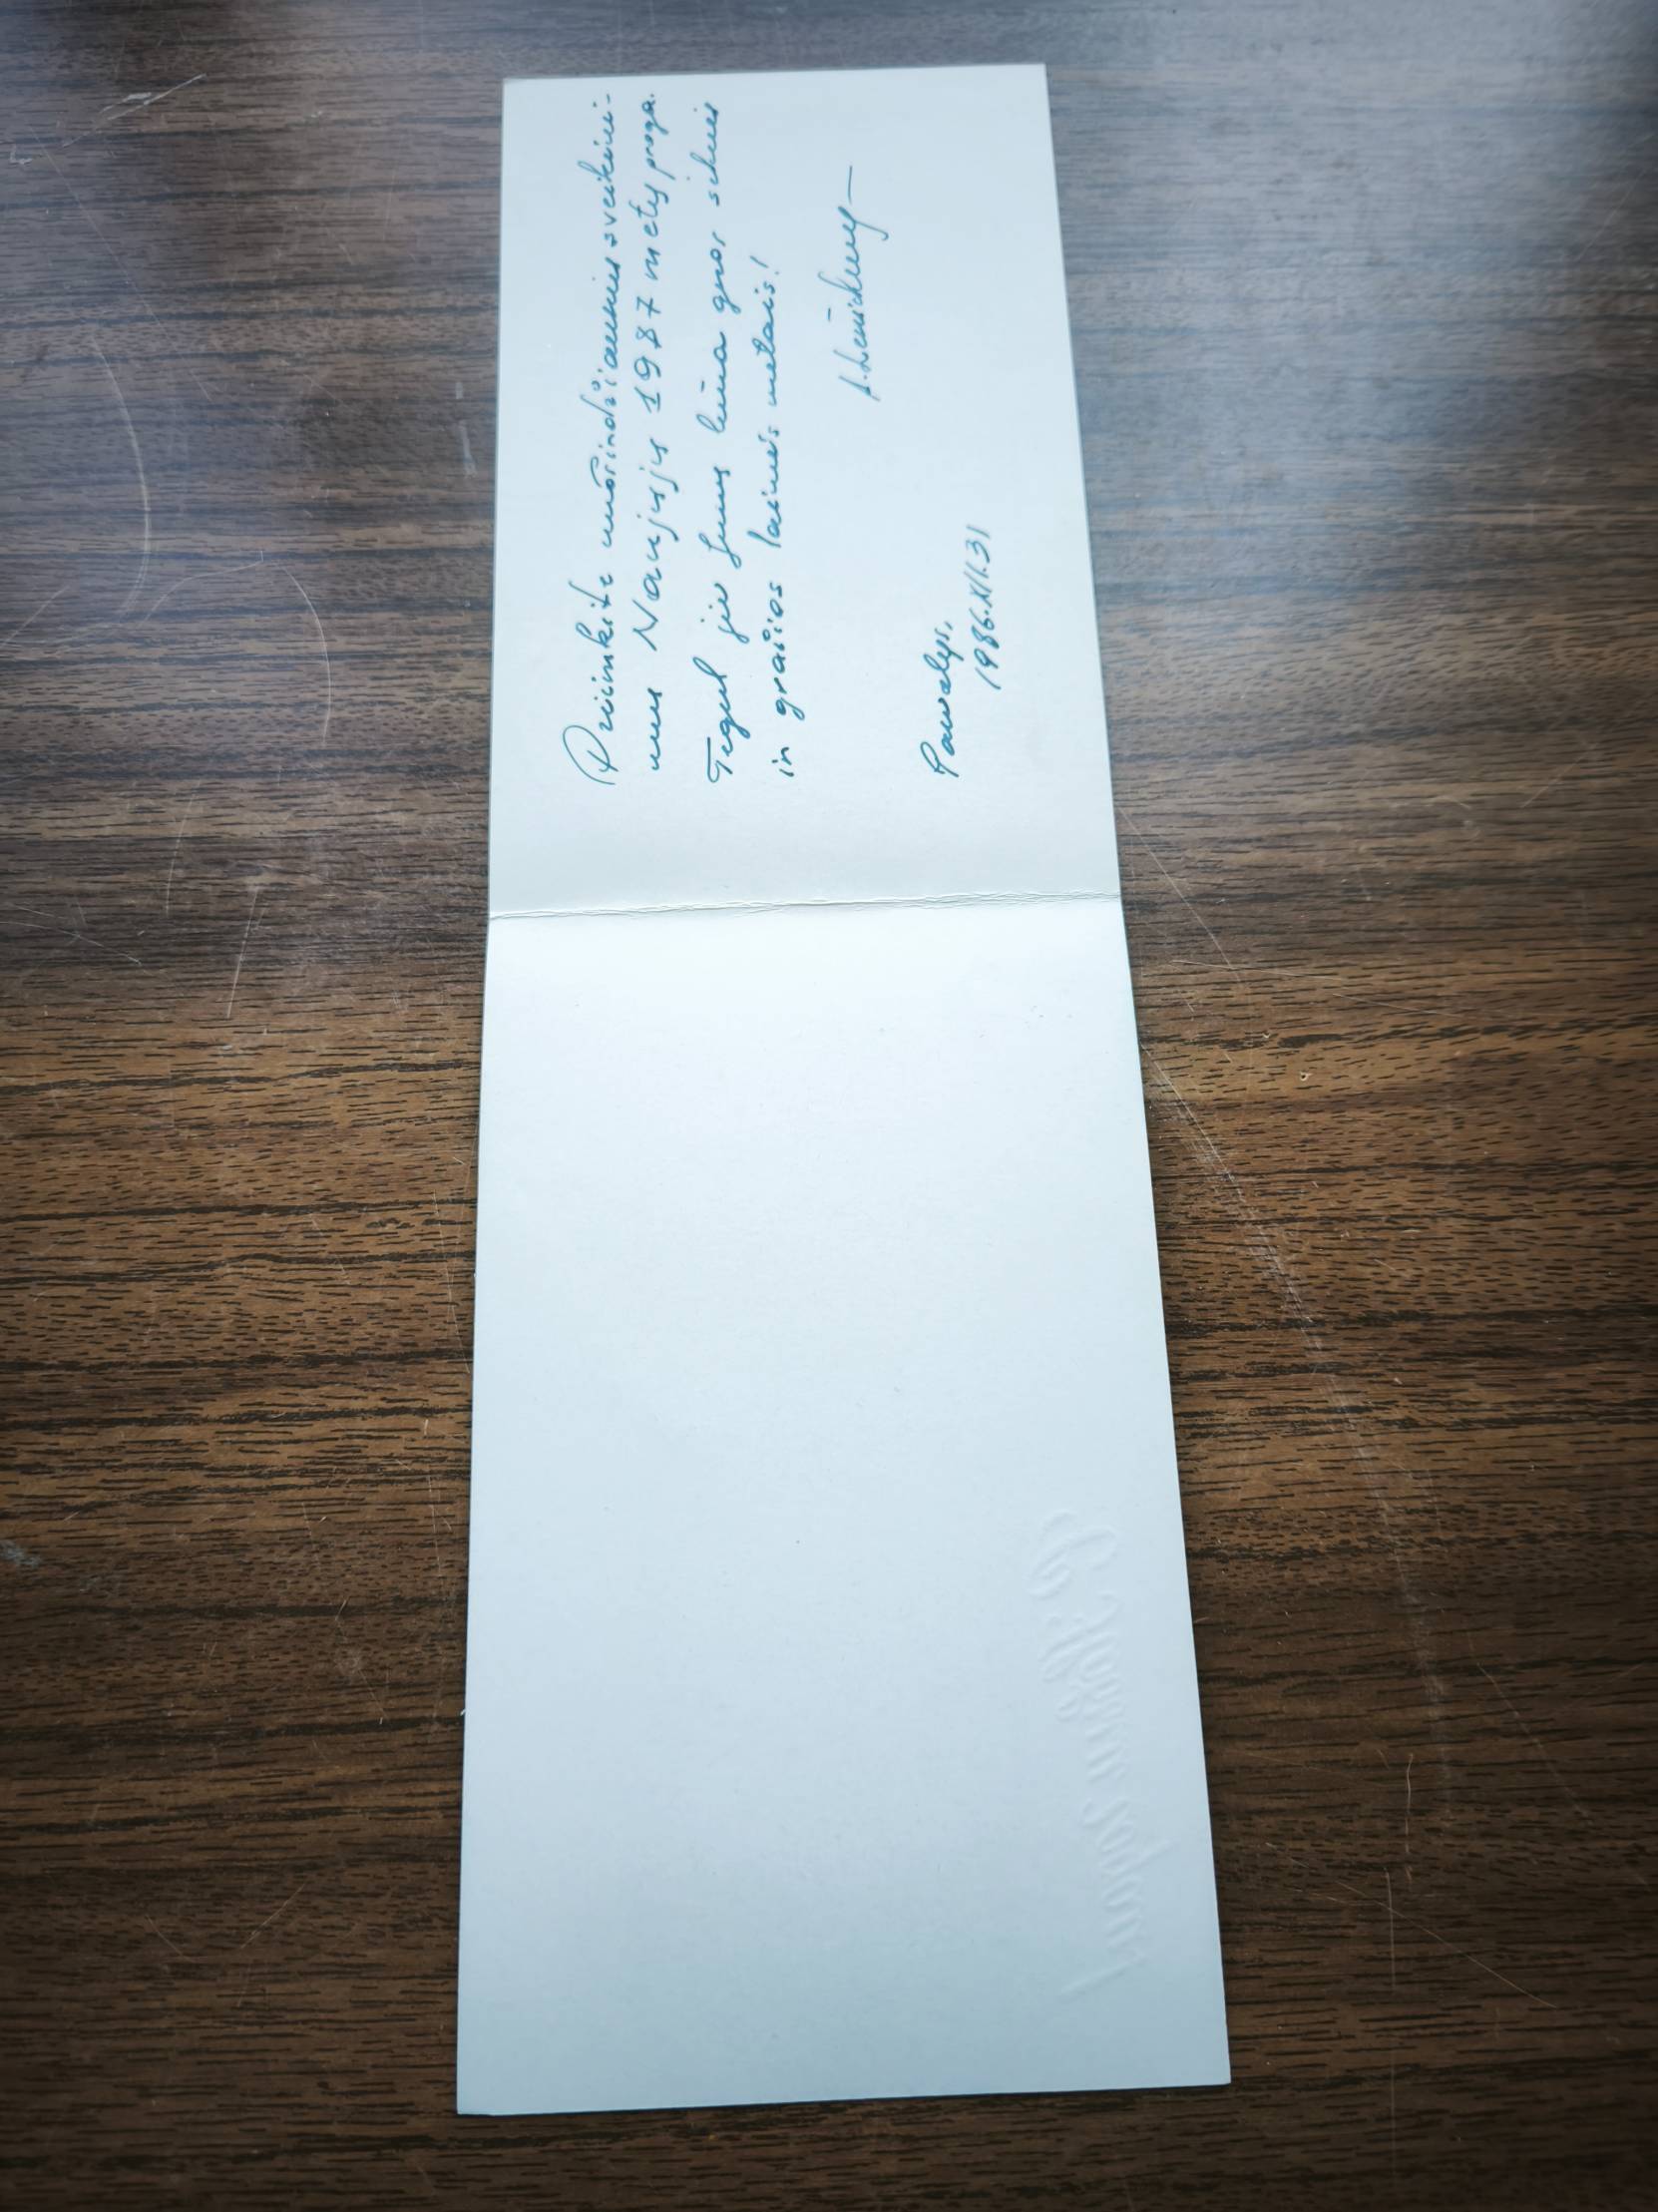 Priimkite nuoširdžiausius sveikini-
mus Naujųjų 1987 metų proga.
Tegul jie Jums būna geros sėkmės
ir gražios laimės metais!
Pasvalys,
1986.XII.31
С Новым годом!